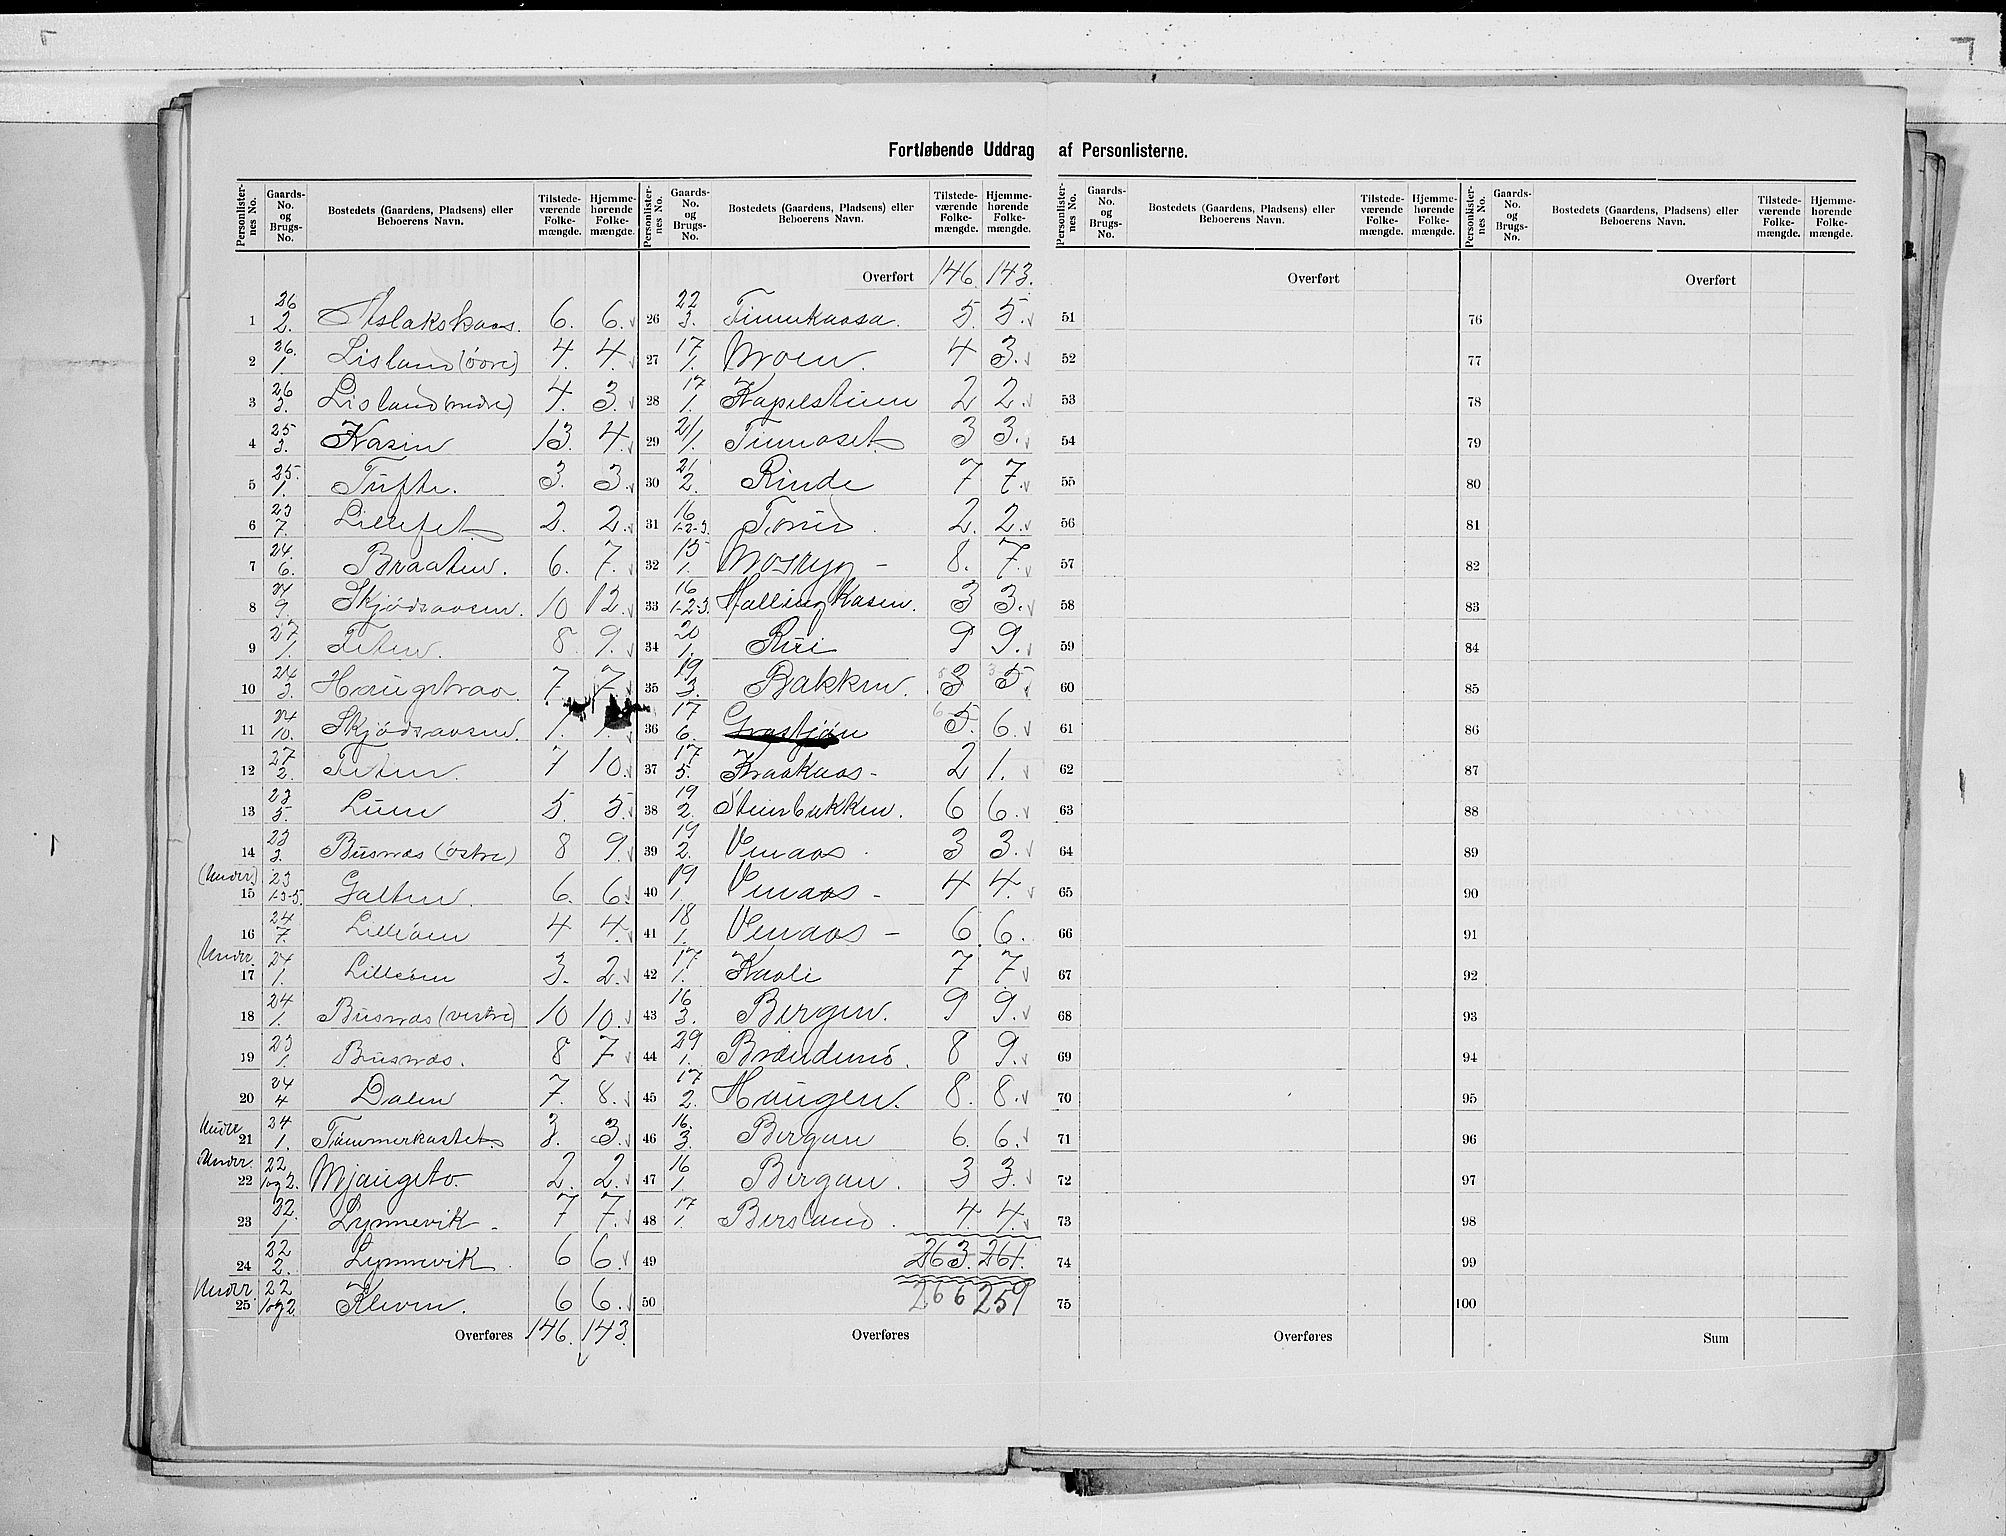 Fortløbende Uddrag af Personlisterne.
Personlisternes No. | Gaards-No. og Brugs-No. | Bostedets (Gaardens, Pladsens) eller Beboerens Navn. | Tilstedeværende Folkemængde. | Hjemmehørende Folkemængde. | Personlisternes No. | Gaards-No. og Brugs-No. | Bostedets (Gaardens, Pladsens) eller Beboerens Navn. | Tilstedeværende Folkemængde. | Hjemmehørende Folkemængde.
Personlisternes No. | Gaards-No. og Brugs-No. | Bostedets (Gaardens, Pladsens) eller Beboerens Navn. | Tilstedeværende Folkemængde. | Hjemmehørende Folkemængde. | Personlisternes No. | Gaards-No. og Brugs-No. | Bostedets (Gaardens, Pladsens) eller Beboerens Navn. | Tilstedeværende Folkemængde. | Hjemmehørende Folkemængde.
1 26/2. Aslakskaas. 6. 6.
2 26./1. Lisland (övre) 4. 4.
3 26/3. Lisland (nedre) 4. 3.
4 25/3. Kasin 13. 4.
5 25./1. Tufte. 3. 3.
6 23/7. Lillefet 2. 2.
7 24./6. Braaten. 6. 7.
8 24/9. Skjödsaasen. 10 12.
9 27/1. Teten. 8. 9.
10 24/3. Haugstraa. 7. 7.
11 24/10. Skjödsaasen. 1. 1.
12 27/2. Teten. 7 10.
13 23/5. Lune 5. 5.
14 23/3. Busnæs (östre) 8 9.
(Under) 15 23/1-3-5. Galten. 6. 6.
16 24/7. Lilleöen 4 4.
(Under. 17 24/1. Lilleöen 3. 2.
18 24/1. Busnæs (vestre) 10 10.
19 23/1. Busnæs. 8 7
20 24/4 Dalen 7. 8.
Under 21 24/1. Tömmerkastet. 3. 3.
Under. 22 22/1og2. Mjaugsto. 2. 2.
23 22./1. Lynnevik - 7 7.
24 22/2. Lynnevik 6 6.
Under. 25 22/1og2 Kleven. 6 6.
Overføres 146. 143
Overført 146. 143.
26 22/3. Tinnekaasa. 5. 5.
27 17/1. Moen. 4 3.
28 17/1. Kapelstuen 2 2.
29 21/1. Tinnoset 3 3.
30 21/2. Rinde 7 7.
31 16/1-2-3. 2. 2.
32 15/1. 8. 7.
33 16/1-2-3. Hallingkasen. 3 3.
34 20/1. Rui 9 9.
35 19/3. Bakken. 5 3 3 5.
36 17/6. Grastjön 6 5. 6.
37 17/5. Kraakaas - 2 1.
38 19/2. Stensbakken. 6 6.
39 19/2. Venaas. 3 3.
40 19/1. Venaas - 4 4.
41 18/1. Venaas - 6 6.
42 17/1. Kaali 7 7
43 16/3. Bergen. 9 9.
44 29/1. Brændenö. 8 9.
45 17/2. Haugen. 8. 8.
46 16./3. Bergan 6. 6.
47 16/1. Bergan. 3 3.
48 17/1. Bersland. 4. 4.
49 263. 261.
50 266 259
Overføres
Overført
51
52
53
54
55
56
57
58
59
60
61
62
63
64
65
66
67
68
69
70
71
72
73
74
75
Overføres
Overført
76
77
78
79
80
81
82
83
84
85
86
87
88
89
90
91
92
93
94
95
96
97
98
99
100
Sum